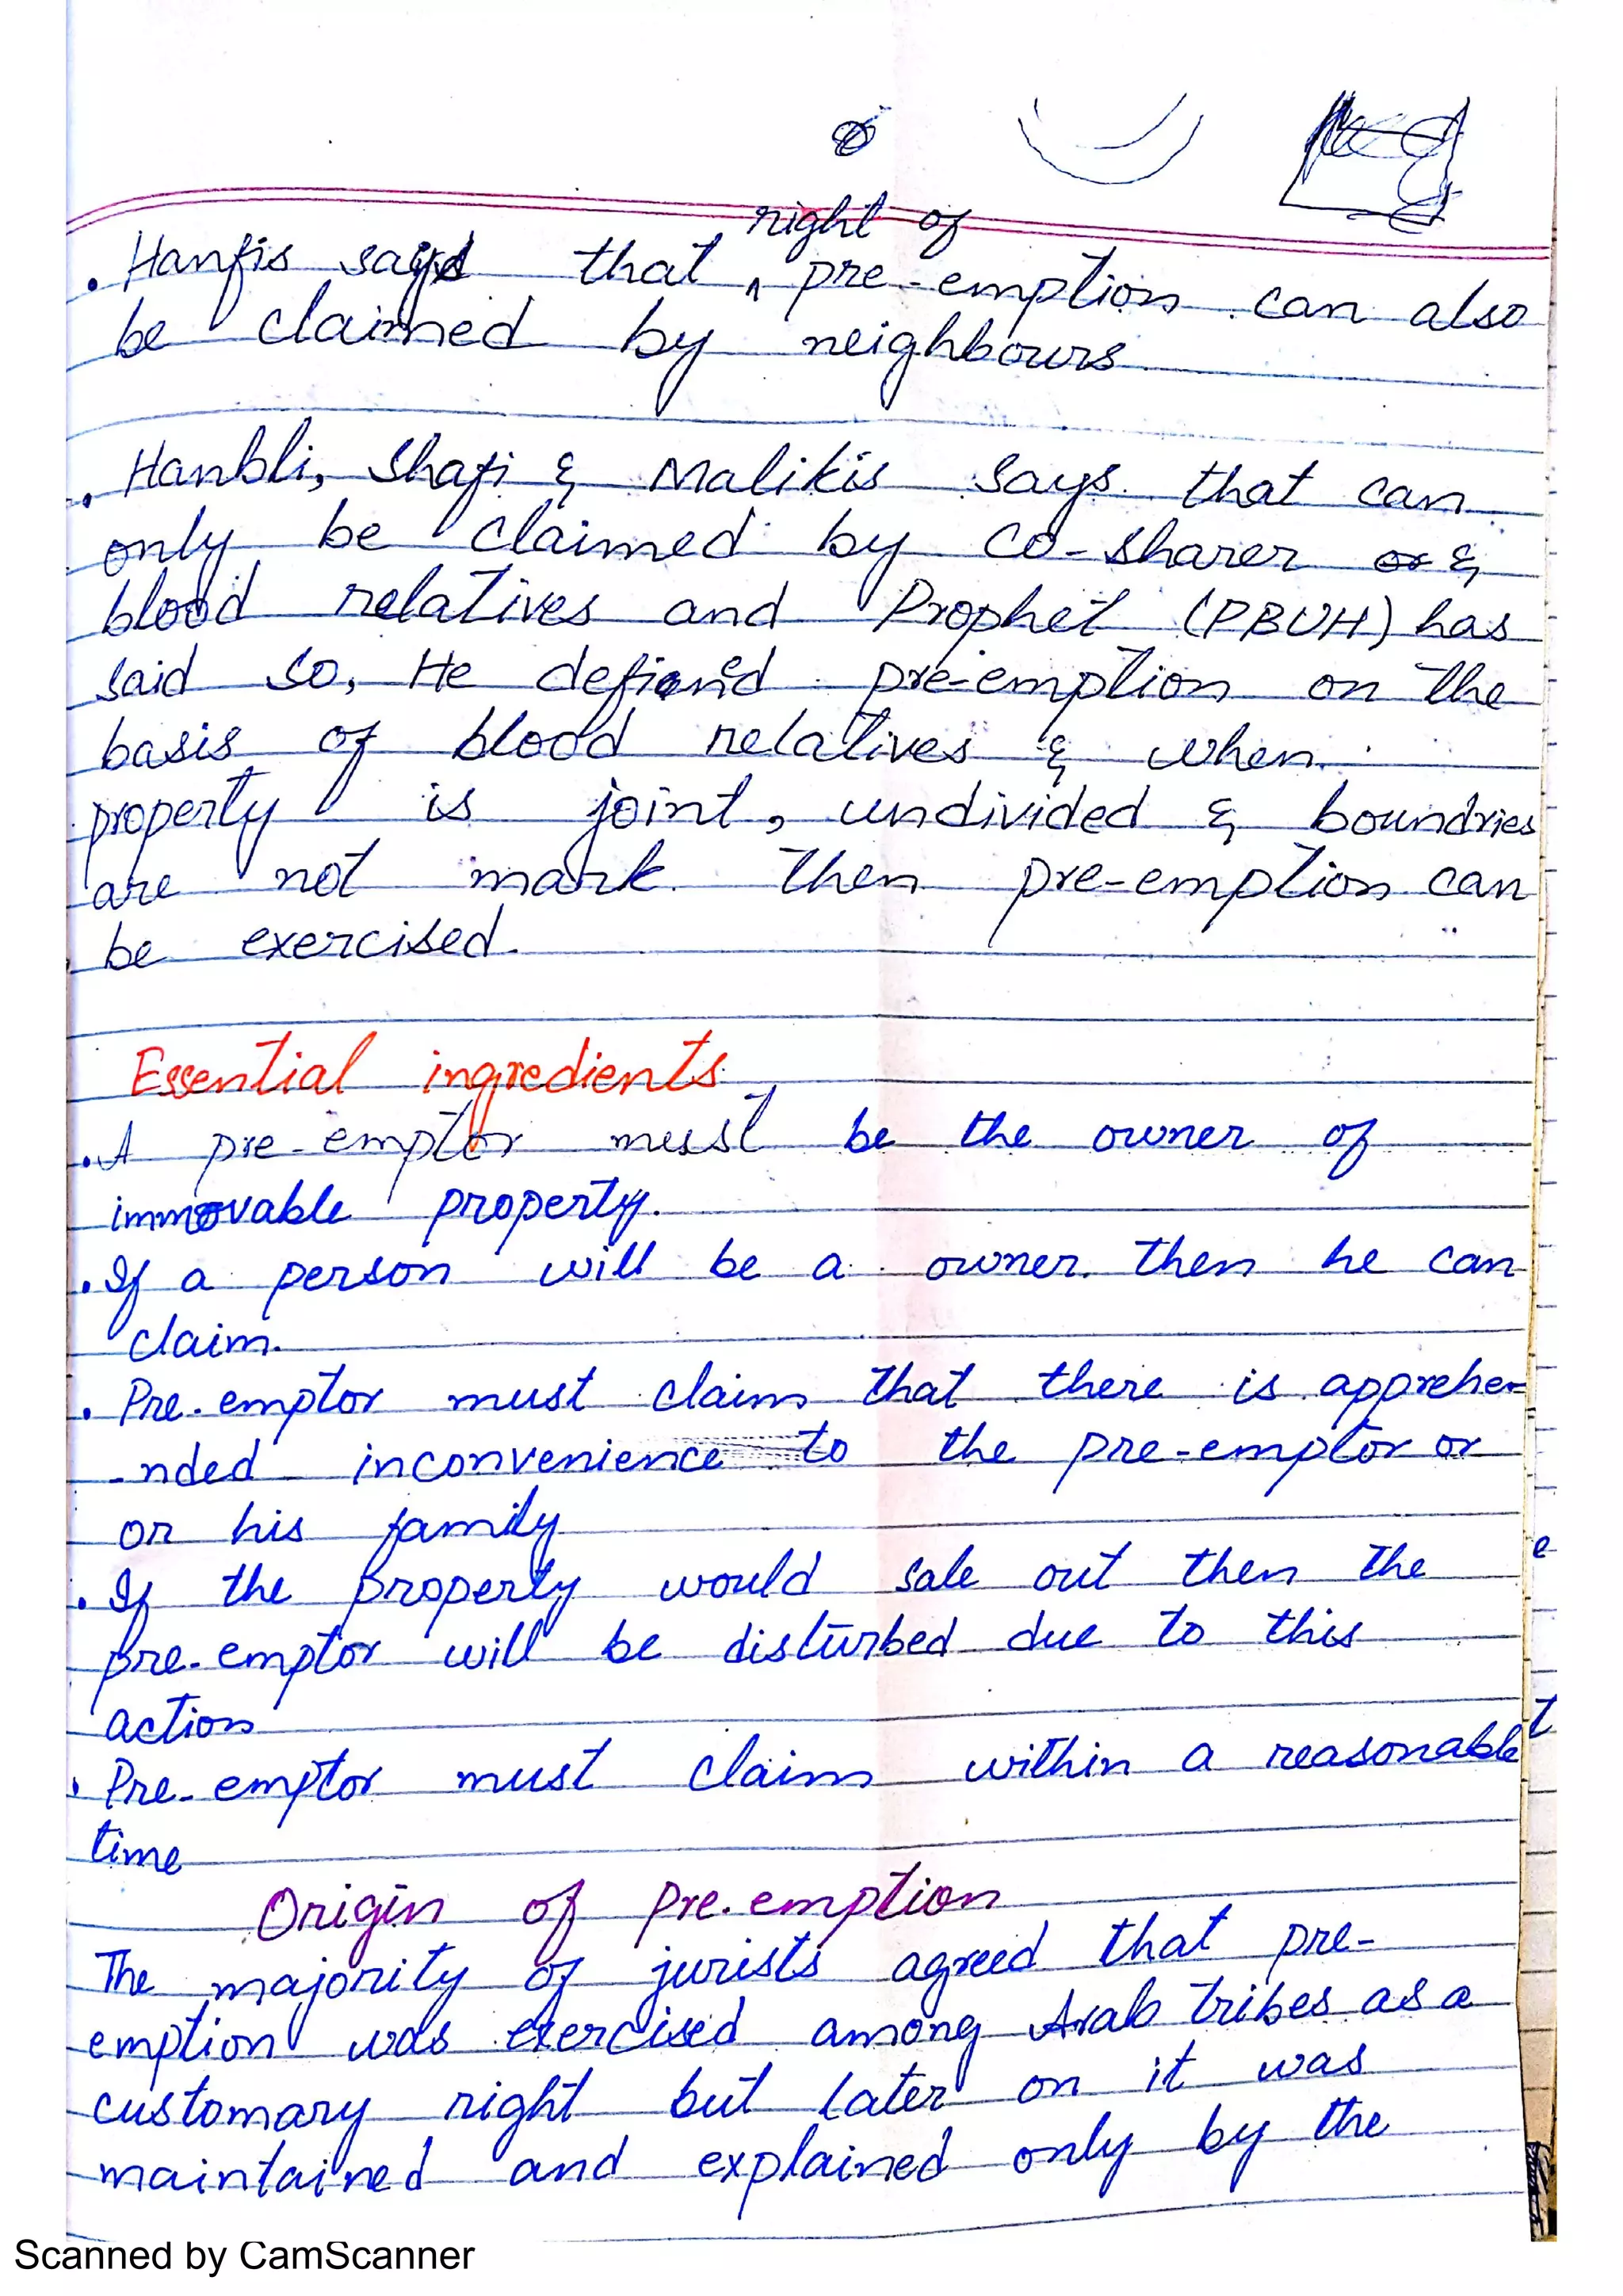 right of
. Hanfis says that ^ pre-emption can also
be claimed by neighbours
. Hanbli, Shafi & Malikis says that can
only be claimed by co-sharer or &
blood relatives and Prophet (PBUH) has
said so, He defined pre-emption on the
basis of blood relatives & when
property is joint, undivided & boundries
are not mark then pre-emption can
be exercised.
Essential ingredients
. A pre-emptor must be the owner of
immovable property.
. If a person will be a owner then he can
claim.
. Pre-emptor must claim that there is apprehe-
-nded inconvenience to the pre-emptor or
or his family
. If the property would sale out then the
pre-emptor will be disturbed due to this
action
. Pre-emptor must claim within a reasonable
time
Origin of pre-emption
The majority of jurists agreed that pre-
emption was exercised among Arab tribes as a
customary right but later on it was
maintained and explained only by the
Scanned by CamScanner